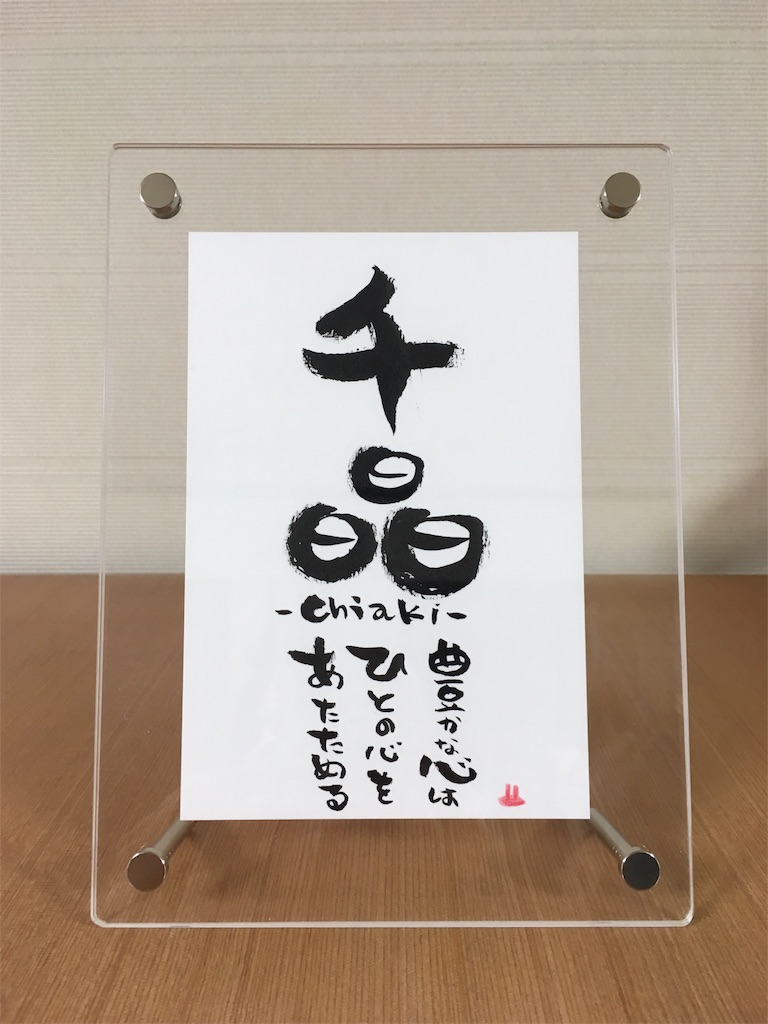 千晶
-Chiaki-
豊かな心は
ひとの心を
あたためる